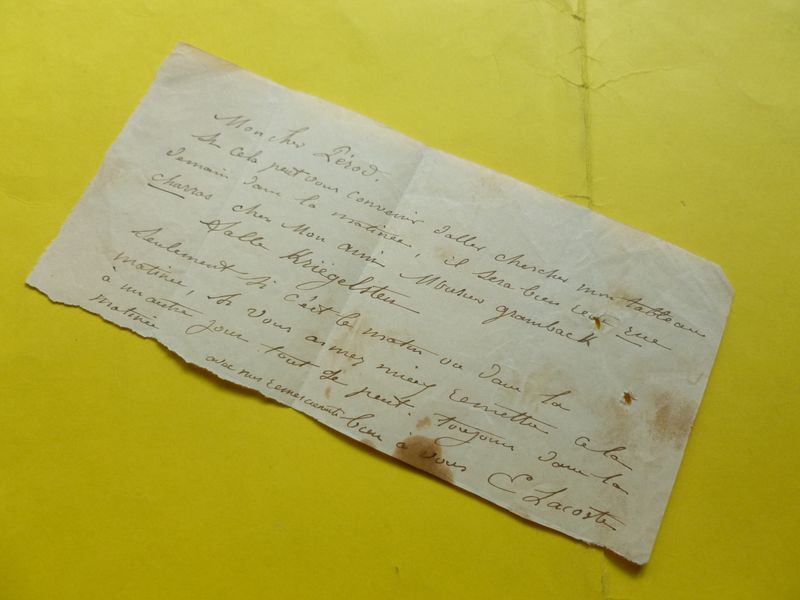 Mon cher Pérod.
Si cela peut vous convenir d'aller chercher mon tableau
demain dans la matinée, il sera bien reçu rue
Charras chez mon ami Monsieur Gramback
Salle Kriegelstein
Seulement si c'est le matin ou dans la
matinée, si vous aimez mieux remettre cela
à un autre jour tout se peut. toujours dans la
matinée
avec mes remerciements bien à vous C Lacoste